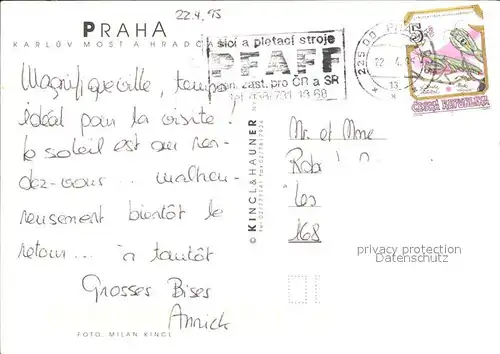 22.4.95
PRAHA
KARLŮV MOST A HRADČ
šicí a pletací stroje
PFAFF
n. zast. pro ČR a SR
225 00 P
22. 4. 
ČESKÁ REPUBLIKA
Magnifique ville, temps
idéal pour la visite !
le soleil est au ren-
dez-vous... malheu-
reusement bientôt le
retour... à tantôt
Grosses Bises
Annick
FOTO: MILAN KINCL
© KINCL & HAUNER
Mr et Mme
Rob
Les
168
privacy protection
Datenschutz